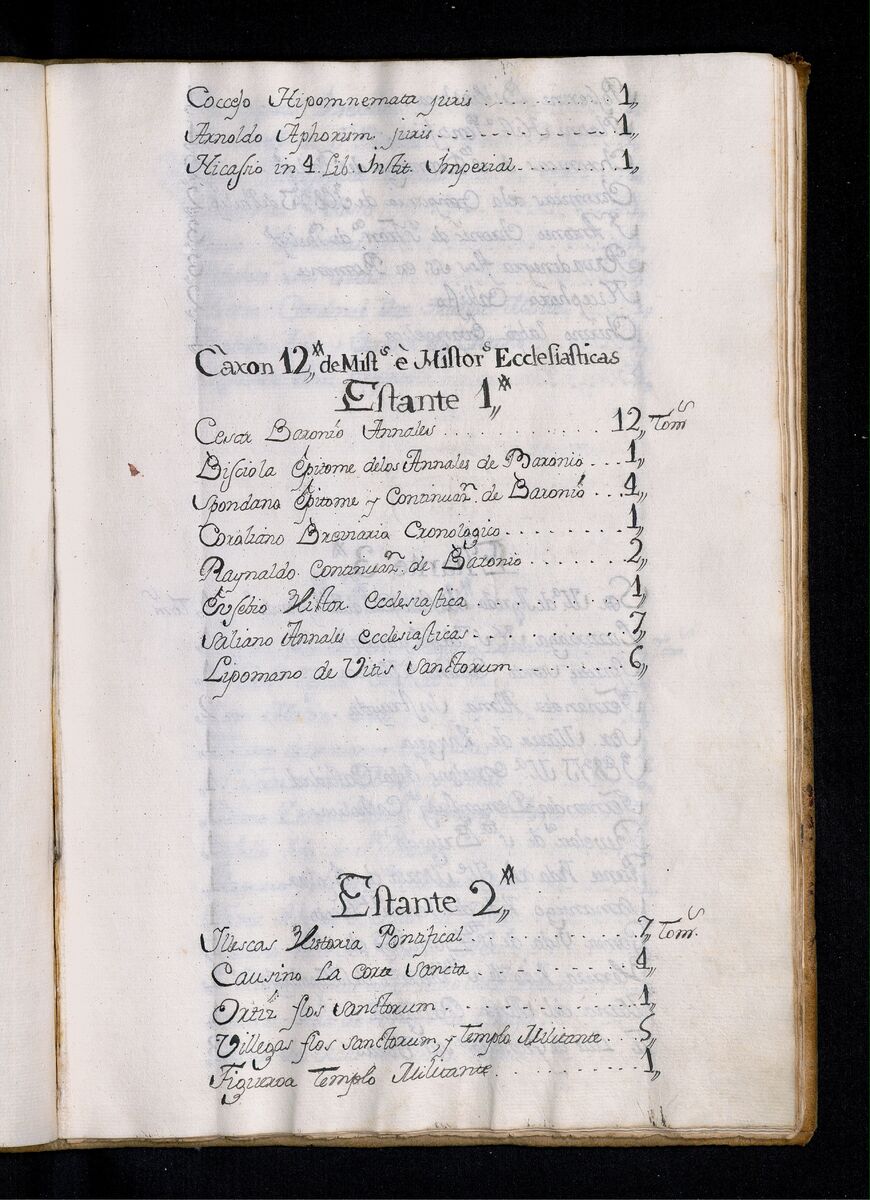 Coccejo Hipomnemata juris . . . . . . . . . . . 1,,
Arnoldo Aphorism. juris . . . . . . . . . . . . 1,,
Nicasio in 4 Lib. Instit. Imperial. . . . . . . . . 1,,
Càxon 12,, de Mist.s è Histor.s Ecclesiasticas
Estante 1,,
Cesar Baronio Annales . . . . . . . . . . . . 12,, Tom.s
Bisciola Epitome delos Annales de Baronio . . . 1,,
Spondano Epitome y Continuan. de Baronio . . . 4,,
Coroliano Breviario Cronologico . . . . . . . . . 1,,
Raynaldo Continuan. de Baronio . . . . . . . . 2,,
Eusebio Histor. Ecclesiastica . . . . . . . . . . 1,,
Saliano Annales Ecclesiasticas . . . . . . . . . 7,,
Lipomano de Vitis Sanctorum . . . . . . . . . 6,,
Estante 2,,
Illescas Historia Pontifical . . . . . . . . . . . 7,, Tom.s
Causino La Corte Sancta . . . . . . . . . . . 4,,
Ortiz flos Sanctorum . . . . . . . . . . . . . 1,,
Villegas flos Sanctorum, y Templo Militante . . . 5,,
Figueroa Templo Militante . . . . . . . . . . . 1,,